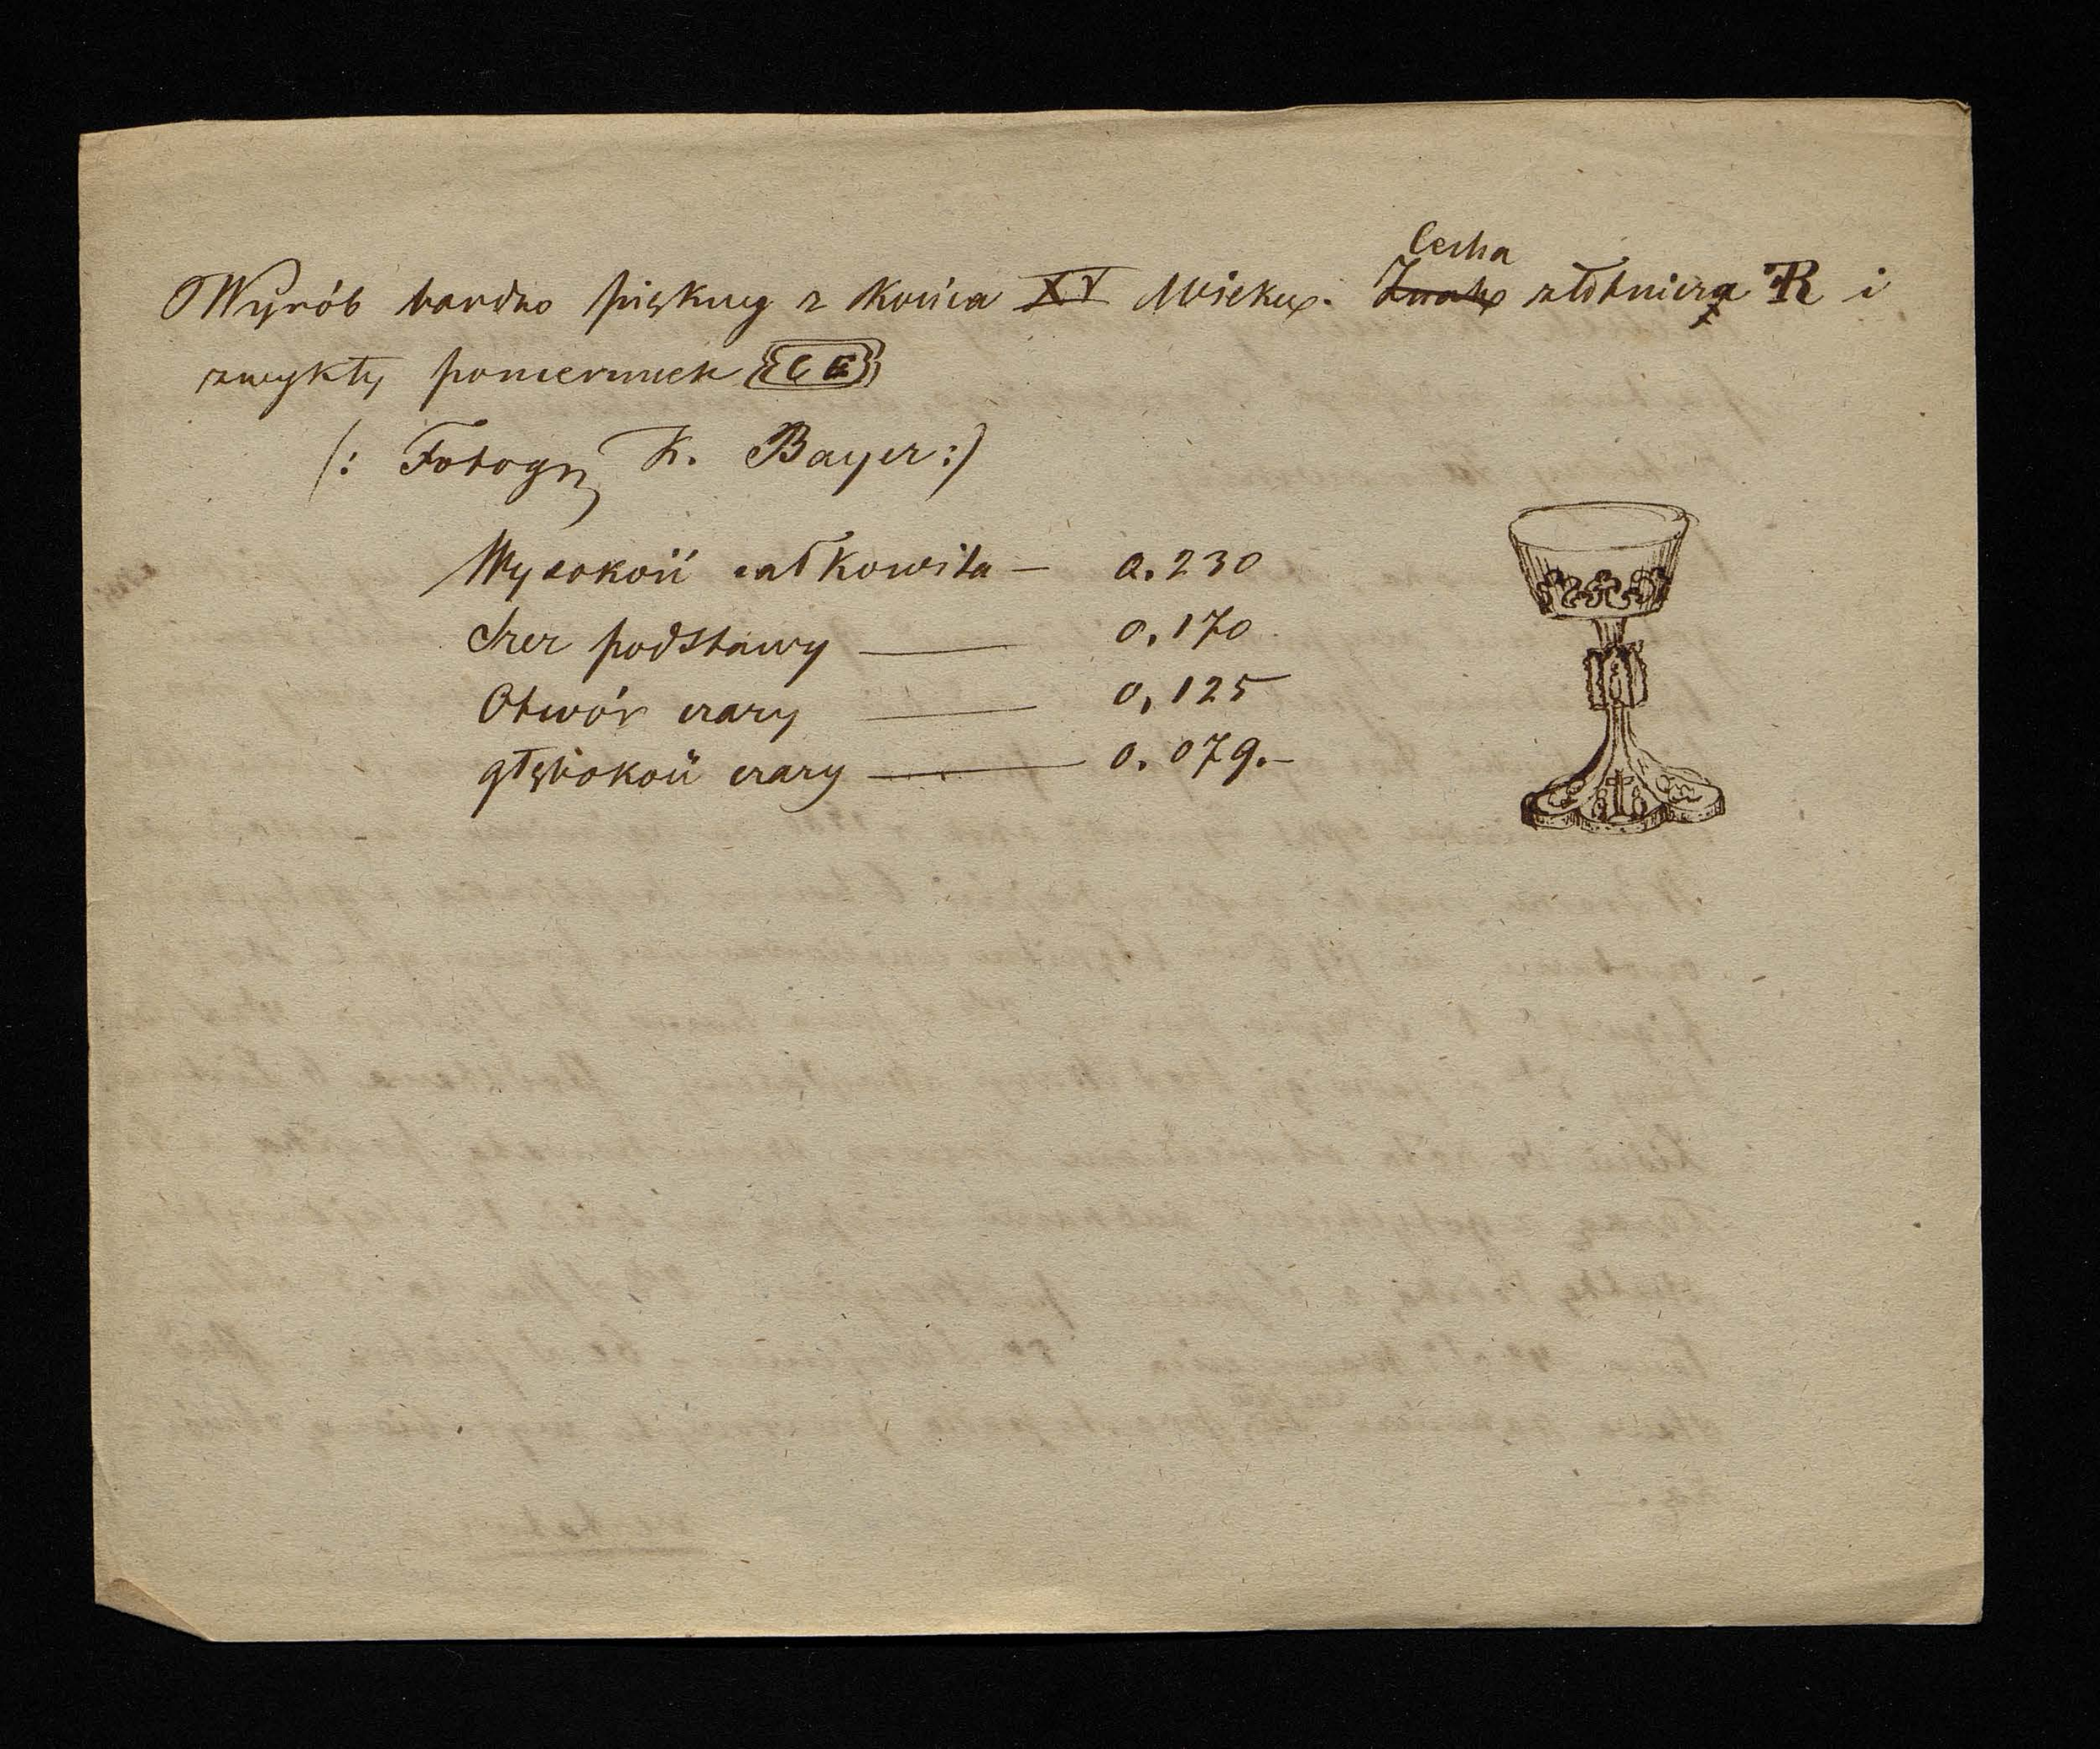 Wyrób bardzo piękny z końca XV Wieku. Cecha złotnicza R i
zwykły poncennek CE
(: Fotogr K. Bayer :)
Wysokość całkowita — 0.230
Szer podstawy — 0.170
Otwór czary — 0,125
głębokość czary — 0.079.—